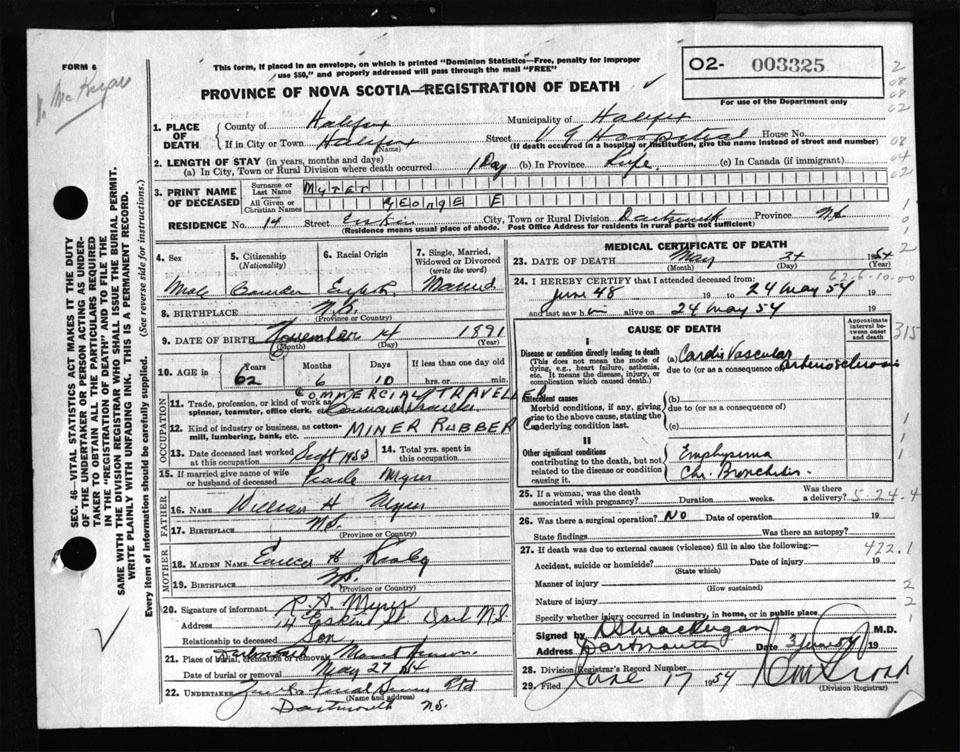 FORM 6
This form, if placed in an envelope, on which is printed "Dominion Statistics—Free, penalty for improper
use $50," and properly addressed will pass through the mail "FREE"
O2- 003325
For use of the Department only
PROVINCE OF NOVA SCOTIA—REGISTRATION OF DEATH
1. PLACE OF DEATH County of Halifax Municipality of Halifax
If in City or Town Halifax (Name) Street V G Hospital House No.
(If death occurred in a hospital or institution, give the name instead of street and number)
2. LENGTH OF STAY (in years, months and days)
(a) In City, Town or Rural Division where death occurred 1 Day (b) In Province Life (c) In Canada (if immigrant)
3. PRINT NAME OF DECEASED Surname or Last Name
All Given or Christian Names GEORGE E
RESIDENCE No. 14 Street Erskin City, Town or Rural Division Dartmouth Province N.S.
(Residence means usual place of abode. Post Office Address for residents in rural parts not sufficient)
4. Sex 5. Citizenship (Nationality) 6. Racial Origin 7. Single, Married, Widowed or Divorced (write the word)
Male English Married
8. BIRTHPLACE N.S. (Province or Country)
9. DATE OF BIRTH November 14 1891
(Month) (Day) (Year)
10. AGE in Years Months Days If less than one day old
62 6 10 hrs. or min.
OCCUPATION
11. Trade, profession, or kind of work as spinner, teamster, office clerk, etc. COMMERCIAL TRAVELLER
12. Kind of industry or business, as cotton-mill, lumbering, bank, etc. MINER RUBBER C
13. Date deceased last worked at this occupation Sept 1953 14. Total yrs. spent in this occupation
15. If married give name of wife or husband of deceased Pearle
FATHER
16. NAME William H
17. BIRTHPLACE N.S. (Province or Country)
MOTHER
18. MAIDEN NAME H
19. BIRTHPLACE N.S. (Province or Country)
20. Signature of informant R. A.
Address 14 Erskin St Dart N.S.
Relationship to deceased Son
21. Place of burial, cremation or removal Dartmouth Mount Hermon
Date of burial or removal May 27 54
22. UNDERTAKER Ltd
(Name and address)
Dartmouth N.S.
MEDICAL CERTIFICATE OF DEATH
23. DATE OF DEATH May 24 1954
(Month) (Day) (Year)
24. I HEREBY CERTIFY that I attended deceased from:
June 48 19 to 24 May 54 19
and last saw him alive on 24 May 54 19
CAUSE OF DEATH
Approximate interval between onset and death
I
Disease or condition directly leading to death
(This does not mean the mode of dying, e.g., heart failure, asthenia, etc. It means the disease, injury, or complication which caused death.)
(a) Cardio Vascular
due to (or as a consequence of) arteriosclerosis
Antecedent causes
Morbid conditions, if any, giving rise to the above cause, stating the underlying condition last.
(b)
due to (or as a consequence of)
(c)
II
Other significant conditions contributing to the death, but not related to the disease or condition causing it.
Emphysema
Chr. Bronchitis
25. If a woman, was the death associated with pregnancy? Duration weeks. Was there a delivery?
26. Was there a surgical operation? NO Date of operation
State findings Was there an autopsy?
27. If death was due to external causes (violence) fill in also the following:—
Accident, suicide or homicide? Date of injury 19
(State which)
Manner of injury
(How sustained)
Nature of injury
Specify whether injury occurred in industry, in home, or in public place
Signed by M.D.
Address Dartmouth Date 3 June 54 19
28. Division Registrar's Record Number
29. Filed June 17 1954
(Division Registrar)
422.1
315
SEC. 46—VITAL STATISTICS ACT MAKES IT THE DUTY
OF THE UNDERTAKER OR PERSON ACTING AS UNDER-
TAKER TO OBTAIN ALL THE PARTICULARS REQUIRED
IN THE "REGISTRATION OF DEATH" AND TO FILE THE
SAME WITH THE DIVISION REGISTRAR WHO SHALL ISSUE THE BURIAL PERMIT.
WRITE PLAINLY WITH UNFADING INK. THIS IS A PERMANENT RECORD.
Every item of information should be carefully supplied. (See reverse side for instructions.)